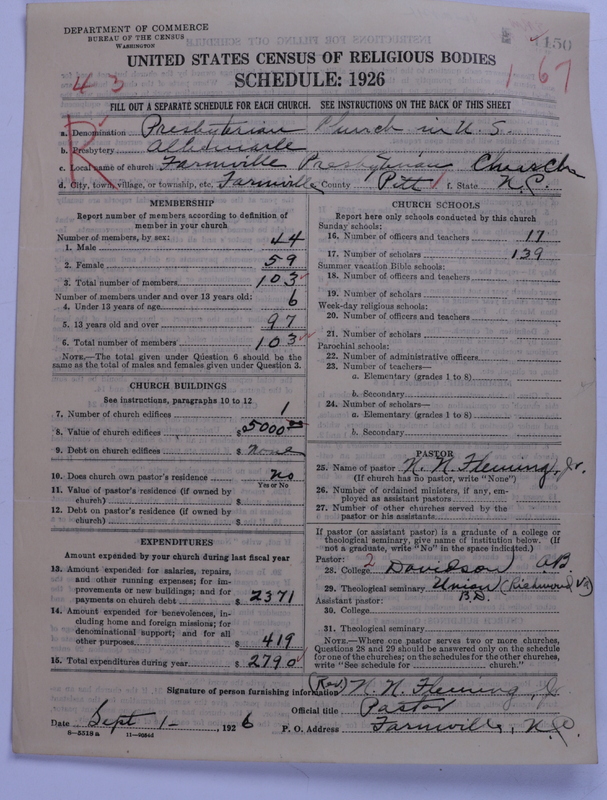 DEPARTMENT OF COMMERCE
BUREAU OF THE CENSUS
WASHINGTON
1150
UNITED STATES CENSUS OF RELIGIOUS BODIES
SCHEDULE: 1926
4 3
1 67
FILL OUT A SEPARATE SCHEDULE FOR EACH CHURCH. SEE INSTRUCTIONS ON THE BACK OF THIS SHEET
R
a. Denomination Presbyterian Church in U. S.
b. Presbytery Albemarle
c. Local name of church Farmville Presbyterian Church
d. City, town, village, or township, etc. Farmville County Pitt f. State N.C.
MEMBERSHIP
Report number of members according to definition of
member in your church
Number of members, by sex:
1. Male 44
2. Female 59
3. Total number of members 103
Number of members under and over 13 years old:
4. Under 13 years of age 6
5. 13 years old and over 97
6. Total number of members 103
NOTE.—The total given under Question 6 should be the
same as the total of males and females given under Question 3.
CHURCH BUILDINGS
See instructions, paragraphs 10 to 12
7. Number of church edifices 1
8. Value of church edifices $5000 00
9. Debt on church edifices $ None
10. Does church own pastor's residence No
Yes or No
11. Value of pastor's residence (if owned by
church) $
12. Debt on pastor's residence (if owned by
church) $
EXPENDITURES
Amount expended by your church during last fiscal year
13. Amount expended for salaries, repairs,
and other running expenses; for im-
provements or new buildings; and for
payments on church debt $ 2371
14. Amount expended for benevolences, in-
cluding home and foreign missions; for
denominational support; and for all
other purposes $ 419
15. Total expenditures during year $ 2790
CHURCH SCHOOLS
Report here only schools conducted by this church
Sunday schools:
16. Number of officers and teachers 17
17. Number of scholars 139
Summer vacation Bible schools:
18. Number of officers and teachers
19. Number of scholars
Week-day religious schools:
20. Number of officers and teachers
21. Number of scholars
Parochial schools:
22. Number of administrative officers
23. Number of teachers—
a. Elementary (grades 1 to 8)
b. Secondary
24. Number of scholars—
a. Elementary (grades 1 to 8)
b. Secondary
PASTOR
25. Name of pastor N. N. Fleming, Jr.
(If church has no pastor, write "None")
26. Number of ordained ministers, if any, em-
ployed as assistant pastors
27. Number of other churches served by the
pastor or his assistants
If pastor (or assistant pastor) is a graduate of a college or
theological seminary, give name of institution below. (If
not a graduate, write "No" in the space indicated.)
Pastor: 2
28. College Davidson AB
29. Theological seminary Union (Richmond Va)
B.D.
Assistant pastor:
30. College
31. Theological seminary
NOTE.—Where one pastor serves two or more churches,
Questions 28 and 29 should be answered only on the schedule
for one of the churches; on the schedules for the other churches,
write "See schedule for church."
Signature of person furnishing information (Rev) N. N. Fleming, Jr
Official title Pastor
Date Sept 1- , 1926 P. O. Address Farmville, N.C.
8—5518 a